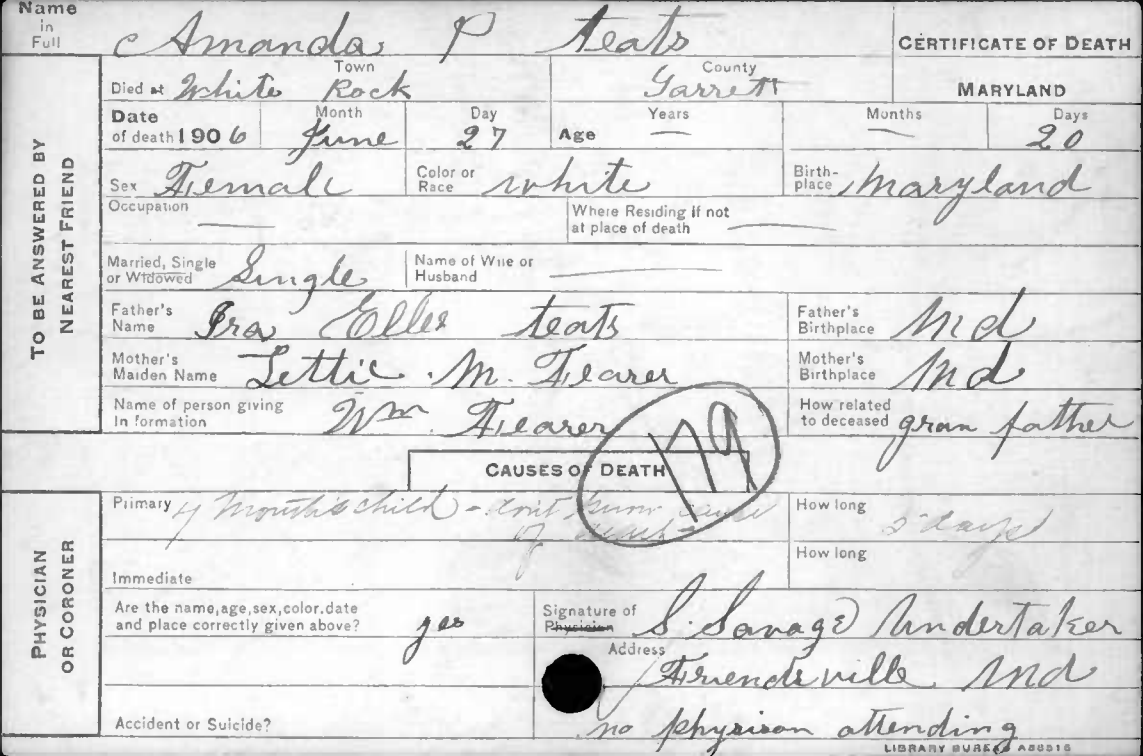 Name in Full Amanda P teats
CERTIFICATE OF DEATH
TO BE ANSWERED BY NEAREST FRIEND
Died at White Rock Town Garrett County MARYLAND
Date of death 1906 Month June Day 27 Age Years — Months — Days 20
Sex Female Color or Race white Birth-place Maryland
Occupation — Where Residing if not at place of death —
Married, Single or Widowed Single Name of Wife or Husband —
Father's Name Ira Elles teats Father's Birthplace Md
Mother's Maiden Name Lettie M. Fearer Mother's Birthplace Md
Name of person giving Information Wm. Fearer How related to deceased gran father
179
CAUSES OF DEATH
PHYSICIAN OR CORONER
Primary Month's child - don't know cause of death How long days
Immediate How long
Are the name, age, sex, color, date and place correctly given above? yes
Signature of Physician S. Savage Undertaker
Address Friendsville Md
Accident or Suicide? no physison attending
LIBRARY BUREAU A88516